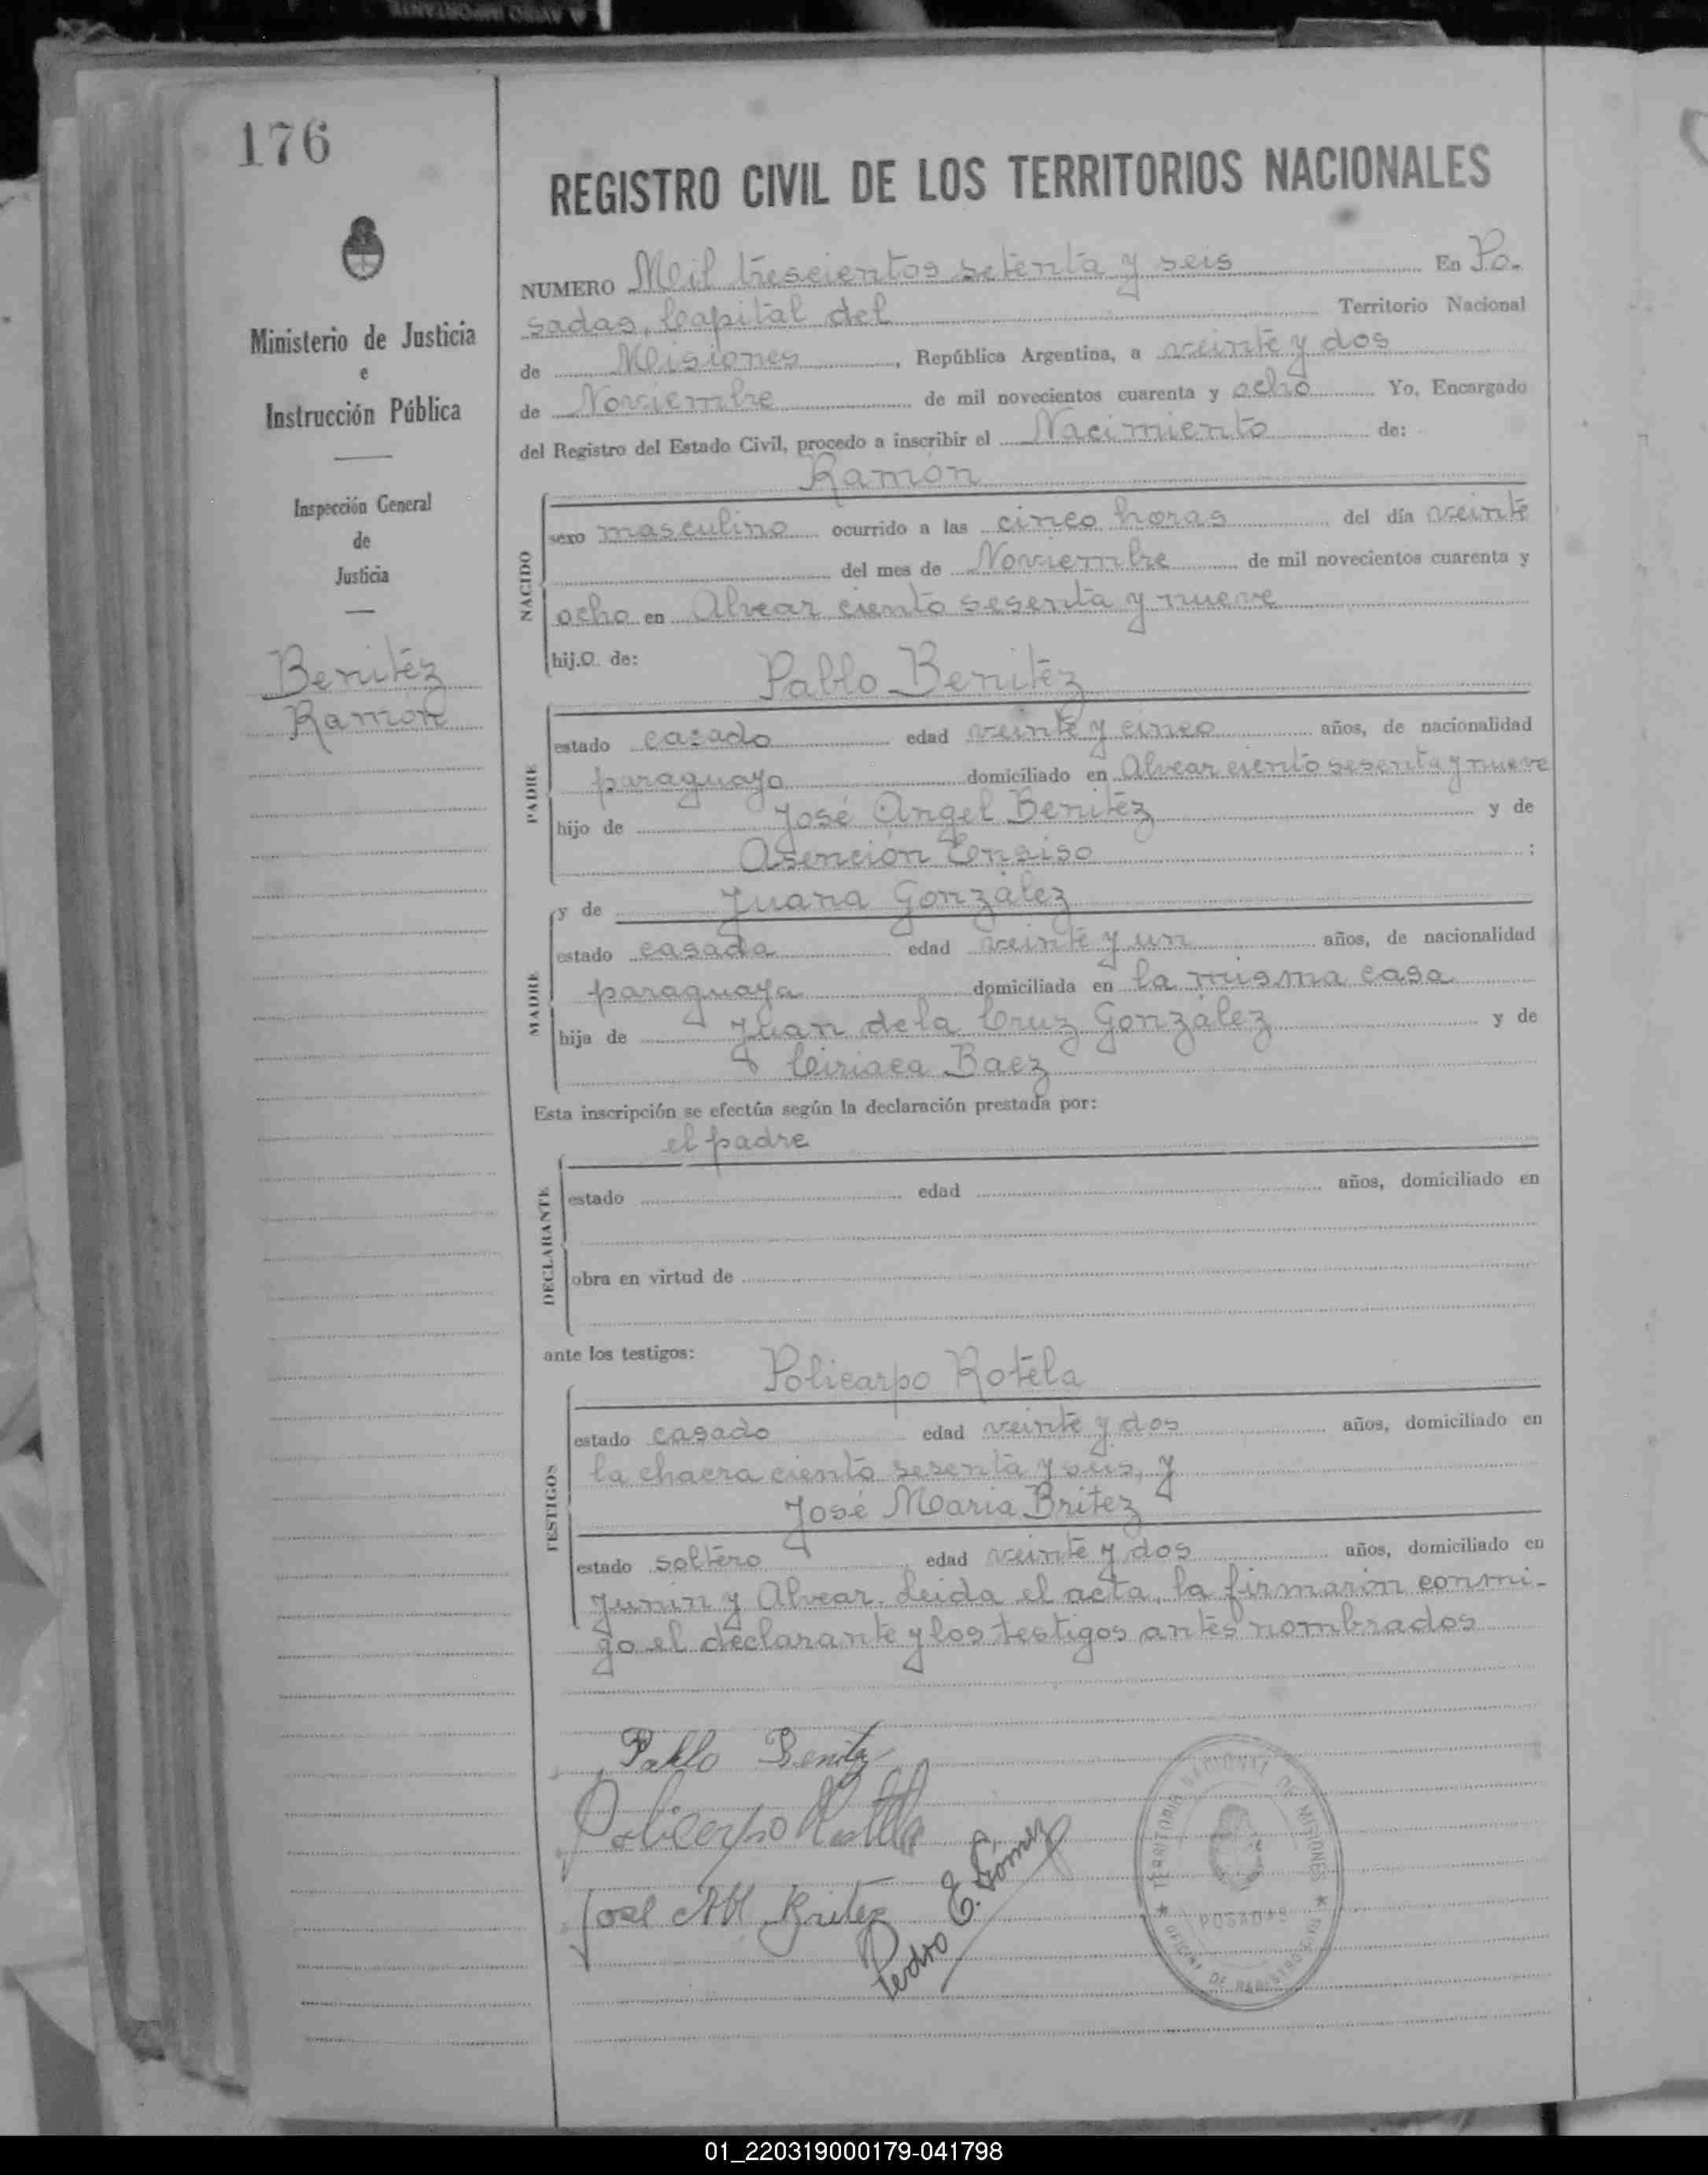 176
REGISTRO CIVIL DE LOS TERRITORIOS NACIONALES
Ministerio de Justicia
e
Instrucción Pública
Inspección General
de
Justicia
Benitez
Ramón
NUMERO Mil trescientos setenta y seis En Po-
sadas, Capital del Territorio Nacional
de Misiones, República Argentina, a veinte y dos
de Noviembre de mil novecientos cuarenta y ocho Yo, Encargado
del Registro del Estado Civil, procedo a inscribir el Nacimiento de:
Ramón
NACIDO
sexo masculino ocurrido a las cinco horas del día veinte
del mes de Noviembre de mil novecientos cuarenta y
ocho en Alvear ciento sesenta y nueve
hijo de:
Pablo Benitez
PADRE
estado casado edad veinte y cinco años, de nacionalidad
paraguayo domiciliado en Alvear ciento sesenta y nueve
hijo de José Angel Benitez y de
Asención ;
MADRE
y de Juana González
estado casada edad veinte y un años, de nacionalidad
paraguaya domiciliada en la misma casa
hija de Juan de la Cruz González y de
Ciriaca Baez
Esta inscripción se efectúa según la declaración prestada por:
el padre
DECLARANTE
estado edad años, domiciliado en
obra en virtud de
ante los testigos:
Policarpo Rotela
TESTIGOS
estado casado edad veinte y dos años, domiciliado en
la chacra ciento sesenta y seis, y
José Maria Britez
estado soltero edad veinte y dos años, domiciliado en
Junin y Alvear. Leida el acta, la firmaron conmi-
go el declarante y los testigos antes nombrados
Pablo Benitez
Policarpo Rotela
José M Britez
Pedro E. Gómez
TERRITORIO NACIONAL DE MISIONES
POSADAS
OFICINA DE REGISTRO CIVIL
01_220319000179-041798